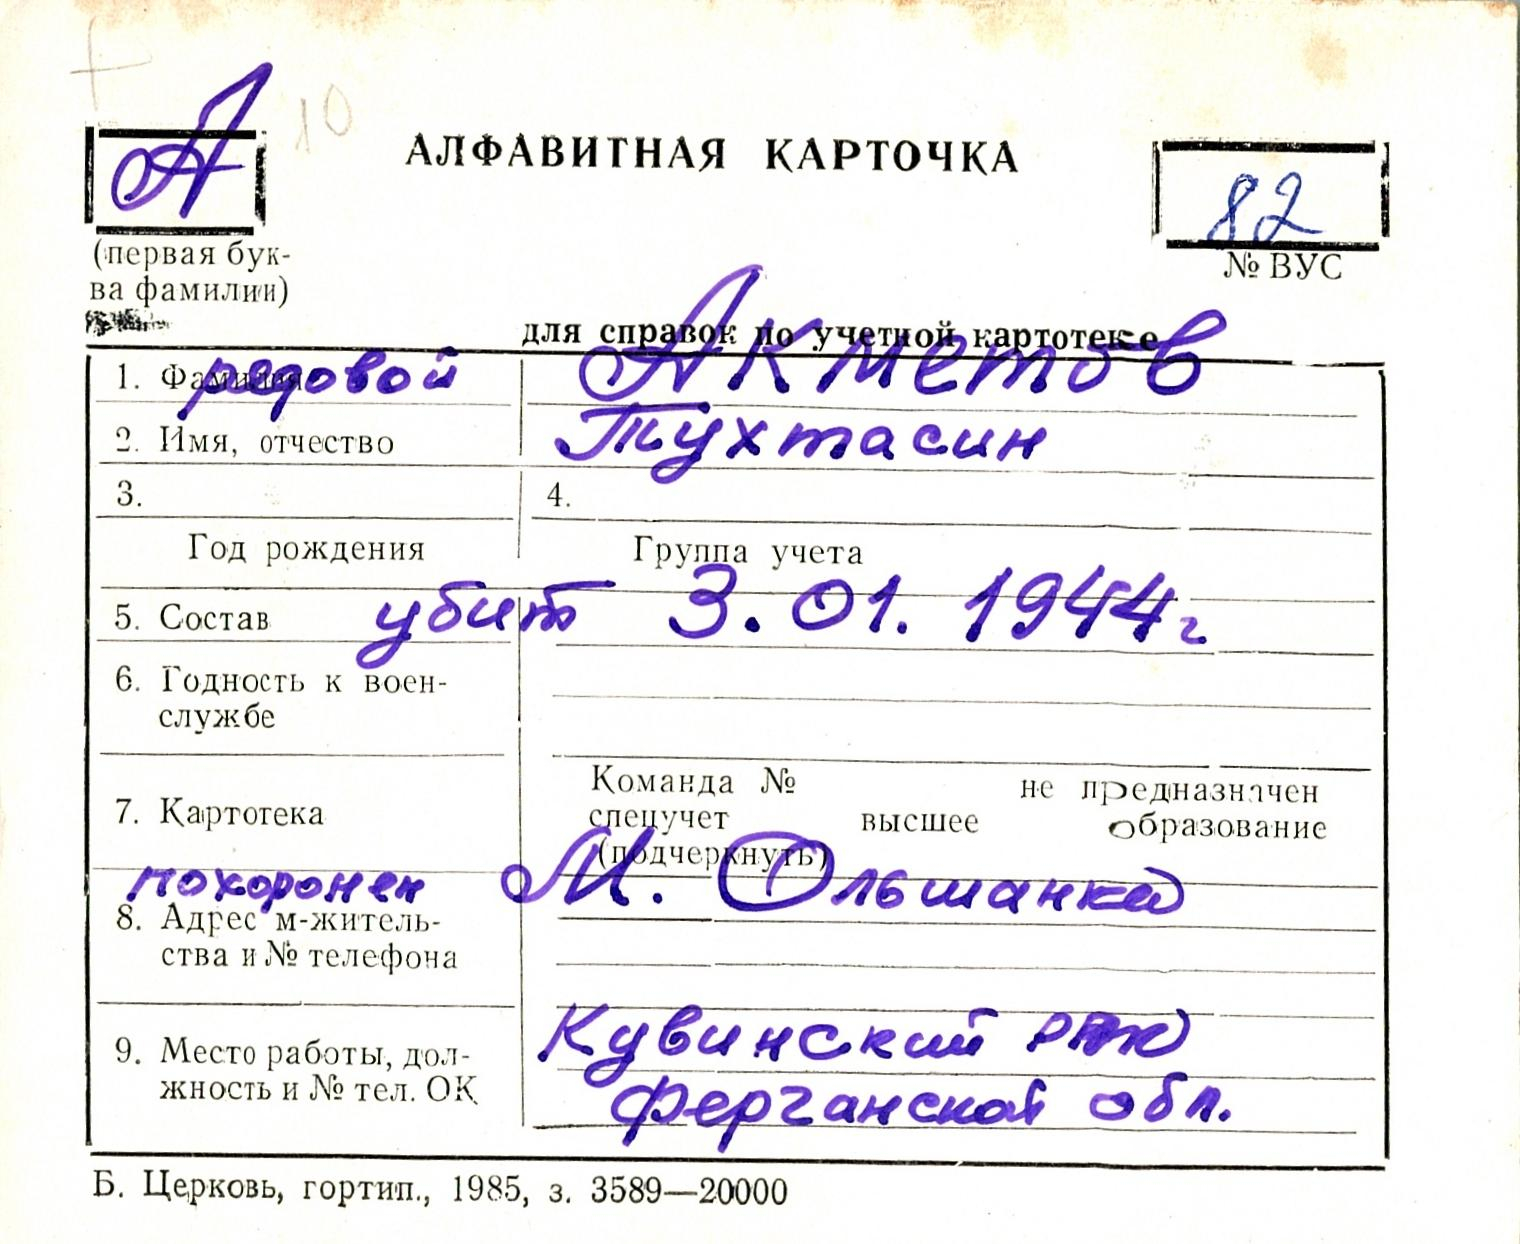 А 10
АЛФАВИТНАЯ КАРТОЧКА
82
(первая бук-
ва фамилии)
№ ВУС
для справок по учетной картотеке
1. Фамилия рядовой Акметов
2. Имя, отчество Тухтасин
3. 4.
Год рождения Группа учета
5. Состав убит 3.01.1944г
6. Годность к воен-
службе
7. Картотека
Команда № не предназначен
спецучет высшее образование
(подчеркнуть)
похоронен М. Ольшанка
8. Адрес м-житель-
ства и № телефона
9. Место работы, дол-
жность и № тел. ОК
Кувинский РВК
Ферганской обл.
Б. Церковь, гортип., 1985, з. 3589—20000